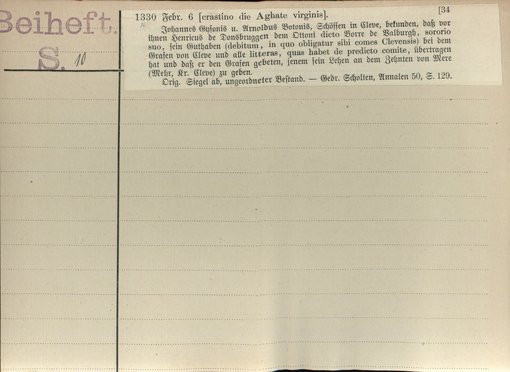 [34
Beiheft.
S. 10
1330 Febr. 6 [crastino die Aghate virginis].
Johannes Gysonis u. Arnoldus Botonis, Schöffen in Cleve, bekunden, daß vor
ihnen Henricus de Donsbruggen dem Ottoni dicto Borre de Walburgh, sororio
suo, sein Guthaben (debitum, in quo obligatur sibi comes Clevensis) bei dem
Grafen von Cleve und alle litteras, quas habet de predicto comite, übertragen
hat und daß er den Grafen gebeten, jenem sein Lehen an dem Zehnten von Mere
(Mehr, Kr. Cleve) zu geben.
Orig. Siegel ab, ungeordneter Bestand. — Gedr. Scholten, Annalen 50, S. 129.